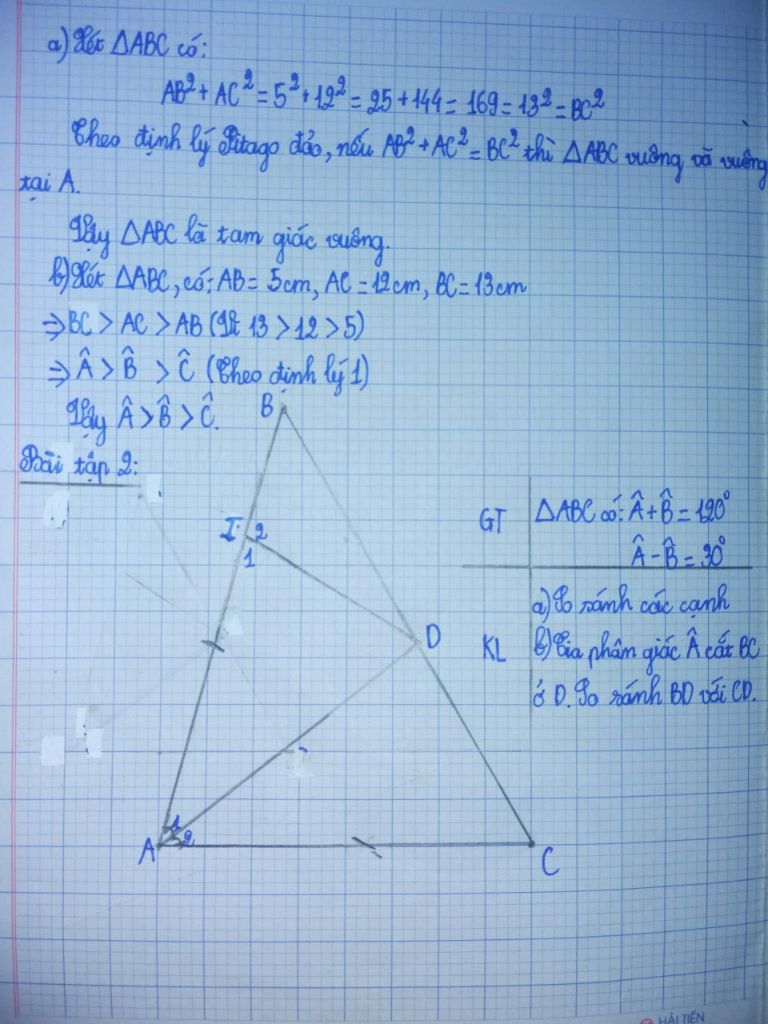 a) Xét △ABC có:
AB² + AC² = 5² + 12² = 25 + 144 = 169 = 13² = BC²
Theo định lý Pitago đảo, nếu AB² + AC² = BC² thì △ABC vuông và vuông
tại A.
Vậy △ABC là tam giác vuông.
b) Xét △ABC, có: AB = 5cm, AC = 12cm, BC = 13cm
⇒ BC > AC > AB (Vì 13 > 12 > 5)
⇒ Â > B̂ > Ĉ (Theo định lý 1)
Vậy Â > B̂ > Ĉ.
B
Bài tập 2:
GT
△ABC có: Â + B̂ = 120°
Â - B̂ = 30°
I 2
1
a) So sánh các cạnh
D
KL
b) Tia phân giác Â cắt BC
ở D. So sánh BD với CD.
1
2
A
C
HẢI TIẾN